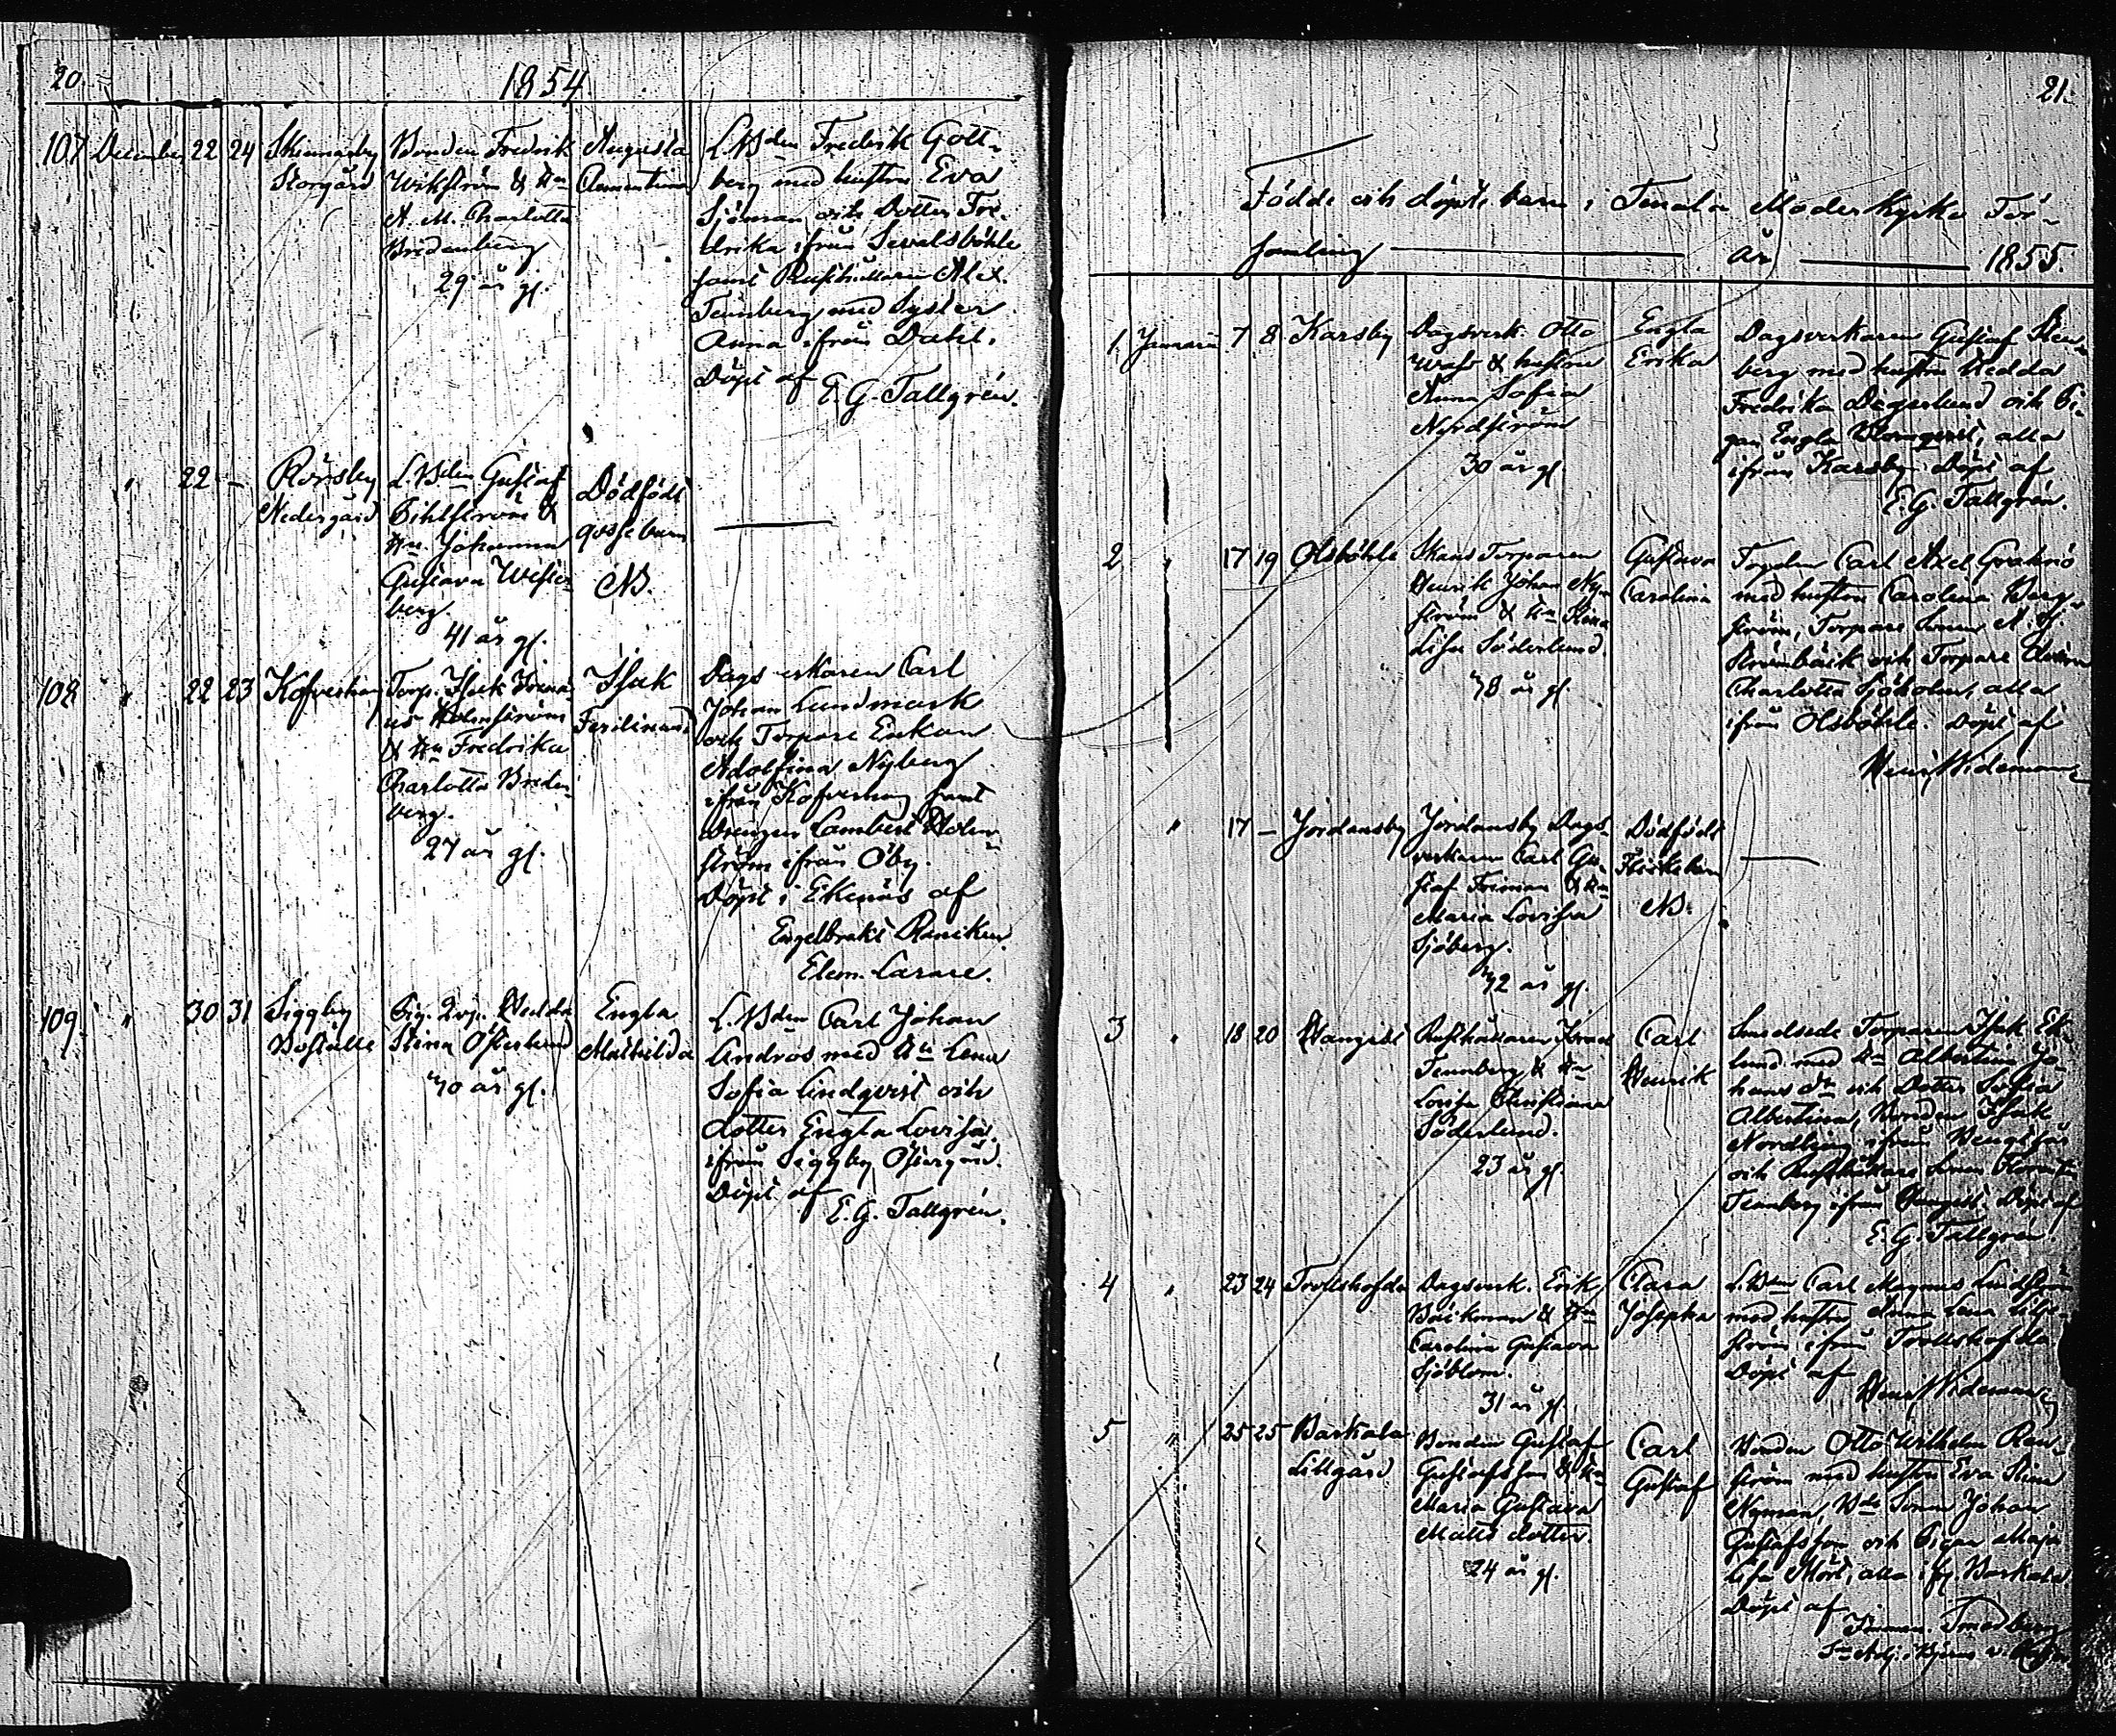 20.
1854
107 December 22 24
Storgård
Bonden Fredrik
Wikström & Hu
A. M. Charlotta
Bredenberg
29 år gl.
Augusta
Clementina
L.Bden Fredrik Gott-
berg med hustru Eva
Sjöman och Dotter Fre-
drika ifrån
samt Rusthållaren Alex.
Tennberg med Syster
Anna ifrån Dahl.
Döpt af E. G. Tallgrén.
" 22 —
Rörsby
Nedergård
L.Bden Gustaf
Pihlström &
Hu. Johanna
Gustava Wester-
berg.
41 år gl.
Dödfödt
gosse barn
NB.
108 " 22 23
Torp. Isak
Holmström
& Hu Fredrika
Charlotta Breden-
berg.
27 år gl.
Isak
Ferdinand
Dagsverkaren Carl
Johan Lundmark
och Torpare Enkan
Adolfina Nyberg
ifrån samt
Drengen Lambert Holm-
ström ifrån Öby.
Döpt i Ekenäs af
Engelbrekt
Elem. Lärare.
109 " 30 31
Siggby
Boställe
Pig. Hedda
Stina Österlund
40 år gl.
Engla
Mathilda
L.Bden Carl Johan
Andros med Hu Lena
Sofia Lindqvist och
dotter Engla Lovisa
ifrån Siggby Östergård.
Döpt af E. G. Tallgrén.
21.
Födde och döpte barn i Tenala Moderkyrko För-
samling — år — 1855.
1 Januari 7 8 Karsby
Dagsverk. Otto
& hustru
Anna Sofia
Nordström
30 år gl.
Engla
Erika
Dagsverkaren Gustaf Sten-
berg med hustru Hedda
Fredrika Degerlund och Pi-
gan Engla Blomqvist, alla
ifrån Karsby. Döpt af
E. G. Tallgrén.
2 " 17 19 Olsböhle
Torparen
Henrik Johan Ny-
ström & Hu Stina
Lisa Söderlund.
43 år gl.
Gustava
Carolina
Carl Axel
med hustru Carolina Berg-
ström, Torpare Sonen
Strömbäck och Torpare
Charlotta Sjöholm, alla
ifrån Olsböhle. Döpt af
Henr Wideman
" 17 — Jordansby
Jordansby Dags-
verkaren Carl Gu-
staf Friman & Hu
Maria Lovisa
Sjöberg.
42 år gl.
Dödfödt
Flickebarn
NB.
3 " 18 20
Rusthållaren
Tennberg & Hu
Lovisa Christina
Söderlund.
23 år gl.
Carl
Henrik
Torparen Isak Ek-
lund med Hu Albertina Jo-
hans dr och Dotter Sofia
Albertina, Bonden Isak
Nordberg ifrån
och Rusthållare Sonen
Tennberg ifrån Döpt af
E. G. Tallgrén
4 " 23 24 Trollshofda
Dagsverk. Erik
Bäckman & Hu
Carolina Gustava
Sjöblom.
31 år gl.
Clara
Josepha
L.Bden Carl Magnus Lindström
med hustru Anna Lena
ström ifrån Trollshofda
Döpt af
Henr Wideman
5 " 25 25 Barkala
Lillgård
Bonden Gustaf
Gustafsson & Hu
Maria Gustava
Matts dotter.
24 år gl.
Carl
Gustaf
Bonden Otto Wilhelm Ren-
ström med hustru Eva Stina
Nyman, Bde Sonen Johan
Gustafsson och Pigan Maja
Lisa Mört, alla ifr. Barkala
Döpt af